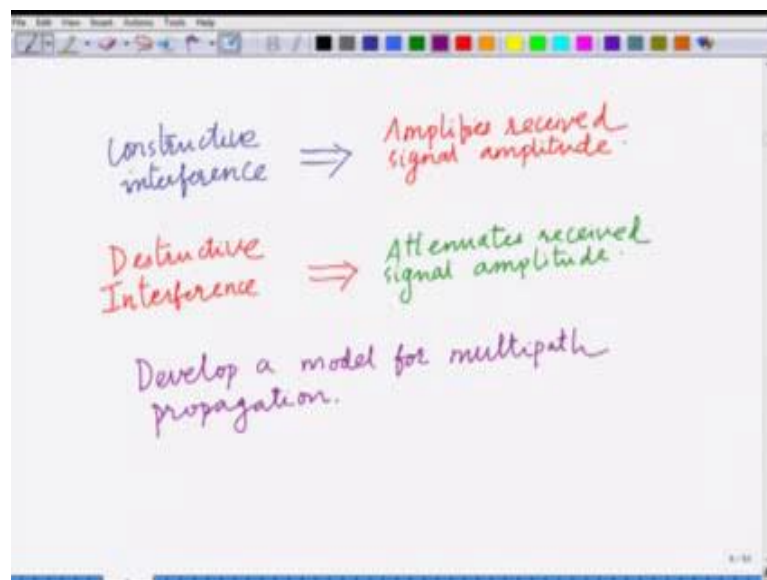 File Edit View Insert Actions Tools Help
Constructive
interference
⇒
Amplifies received
signal amplitude.
Destructive
Interference
⇒
Attenuates received
signal amplitude.
Develop a model for multipath
propagation.